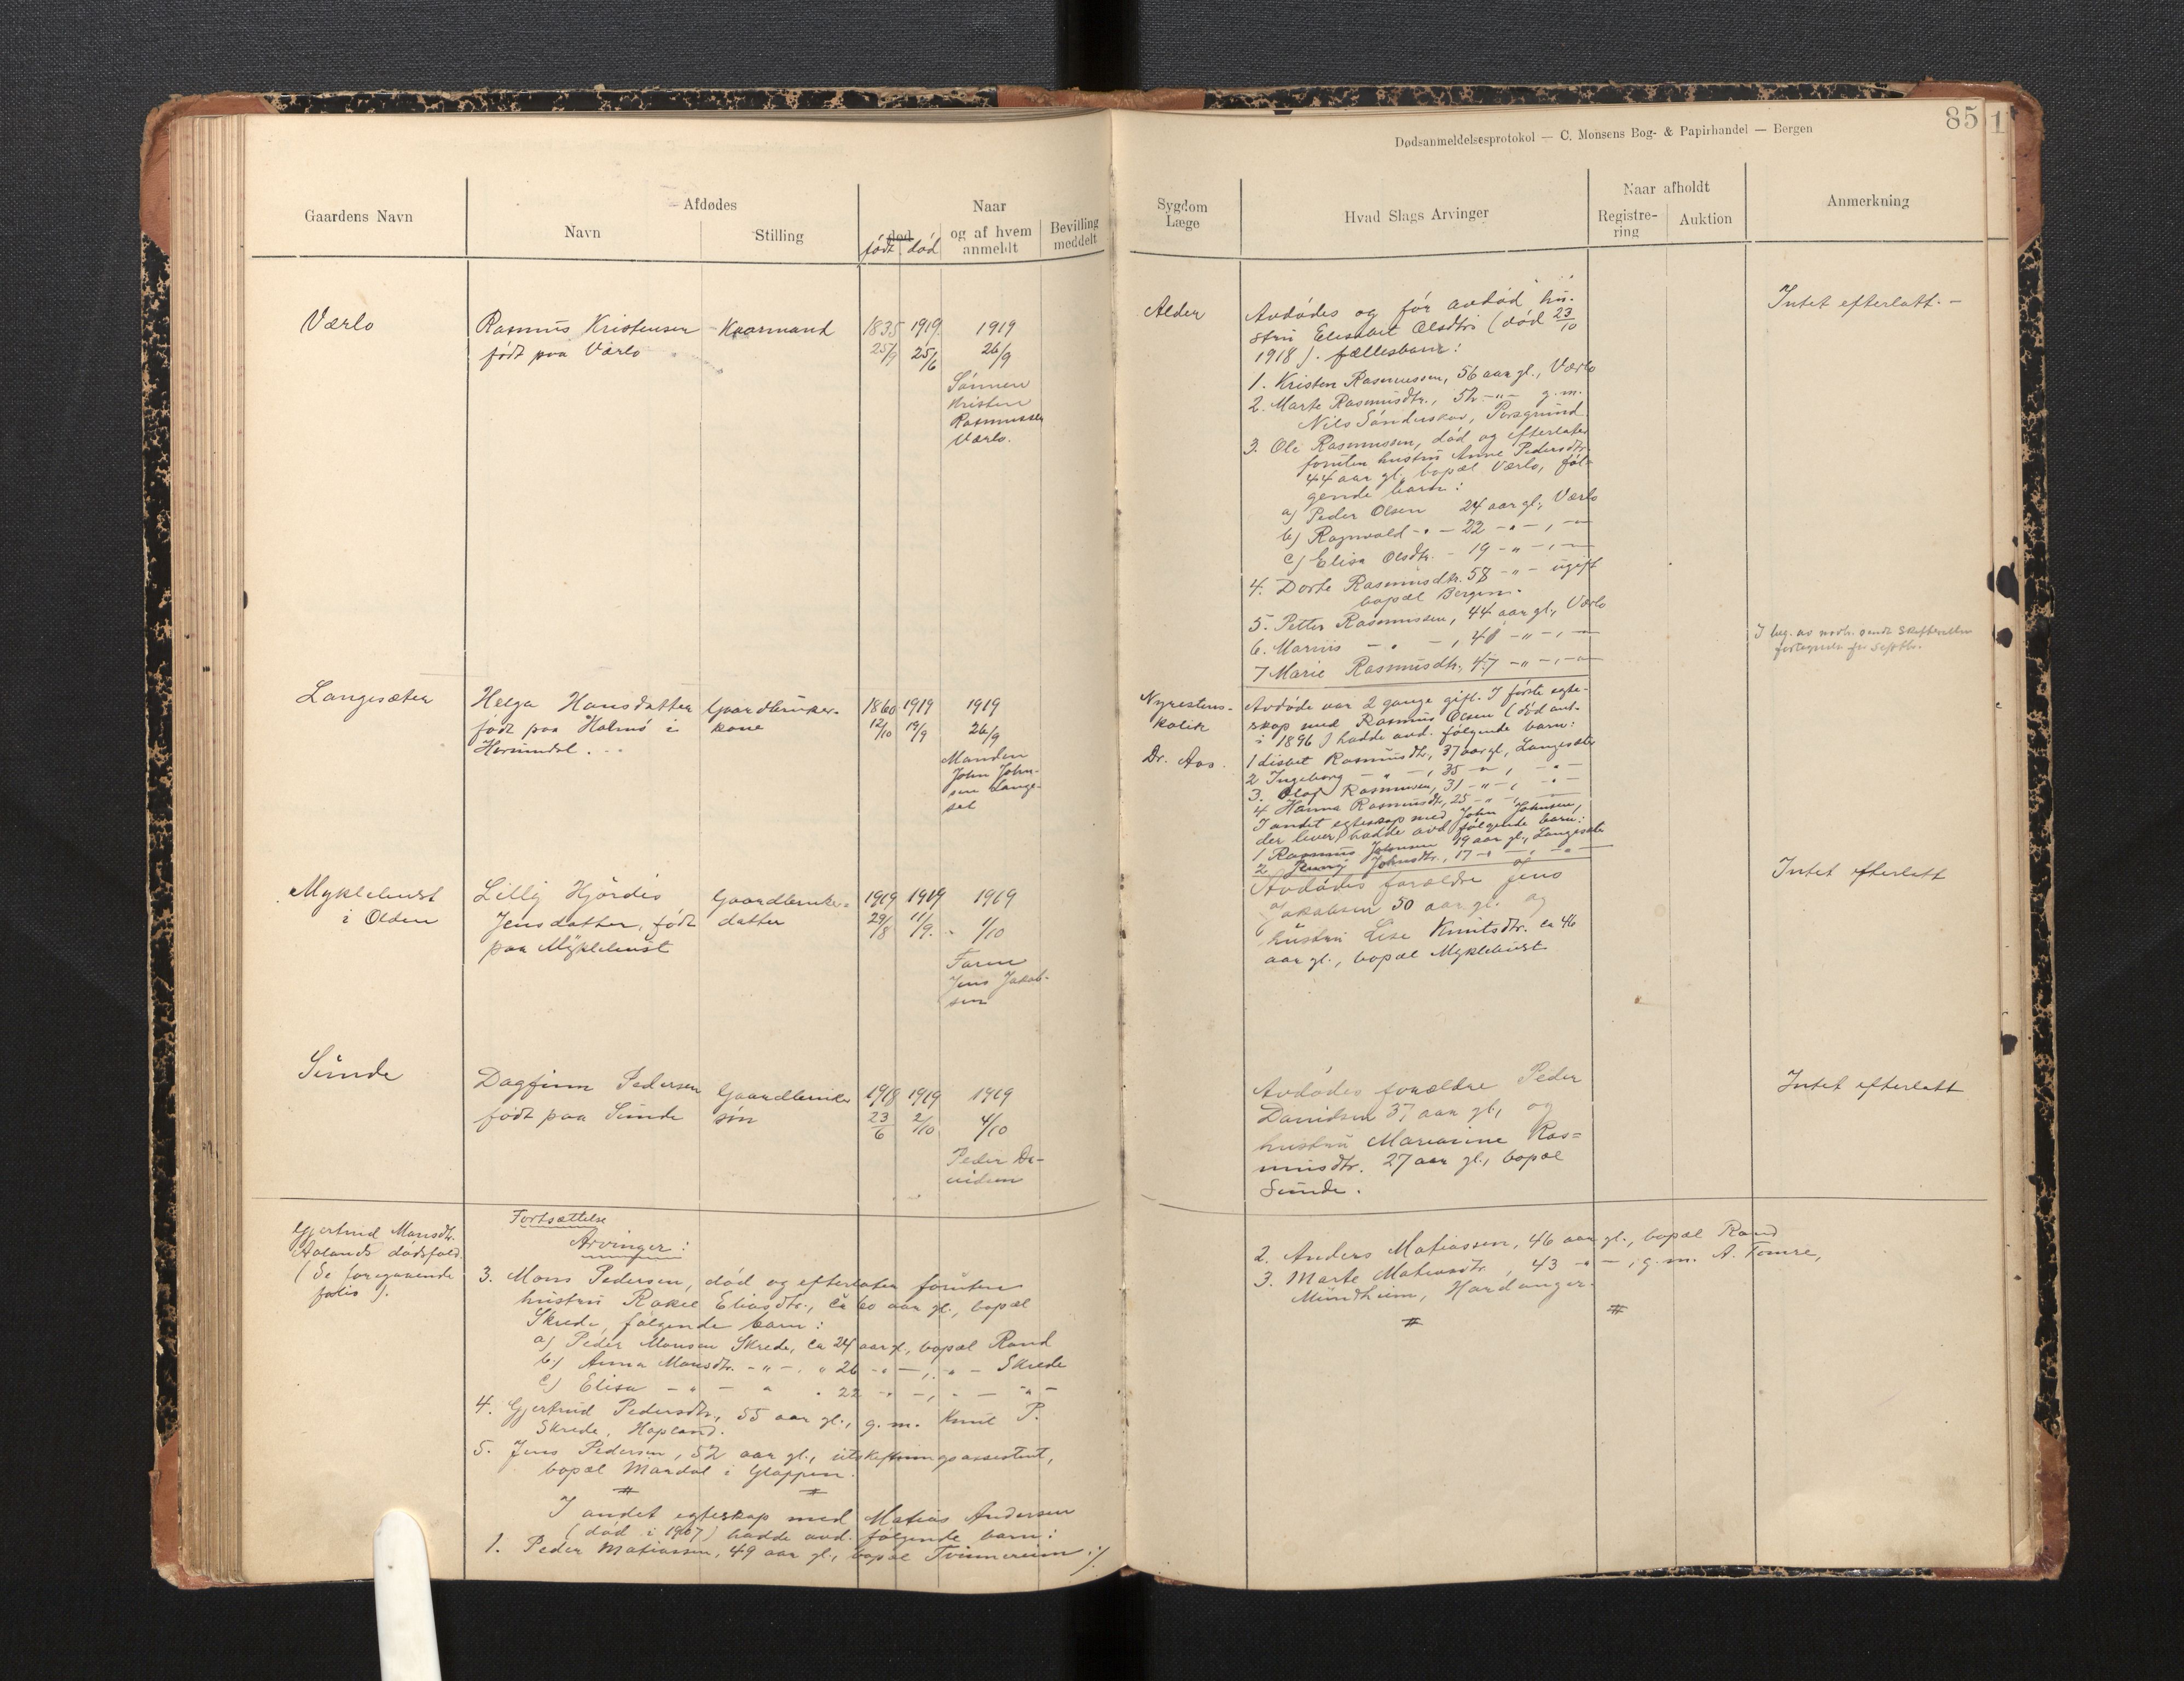 85
1
Dødsanmeldelsesprotokol — C. Monsens Bog- & Papirhandel — Bergen
Gaardens Navn
Afdødes
Navn
Stilling
Naar
død
født død
og af hvem
anmeldt
Bevilling
meddelt
Sygdom
Læge
Hvad Slags Arvinger
Naar afholdt
Registre-
ring
Auktion
Anmerkning
Værlo
Rasmus Kristensen
født paa Værlo
Kaarmand
1835 1919 1919
25/9 25/6 26/9
Sønnen
Kristen
Rasmussen
Værlo.
Alder
Avdødes og før avdød hu-
stru Elisabet Olsdtr (død 23/10
1918). fællesbarn:
1. Kristen Rasmussen, 56 aar gl., Værlo
2. Marte Rasmusdtr., 52 -"- g.m.
Nils Sønderskov, Porsgrund
3. Ole Rasmussen, død og efterlater
foruten hustru Anne Pedersdtr
44 aar gl. bopæl Værlo, føl-
gende barn:
a) Peder Olsen 24 aar gl., Værlo
b) Ragnvald -"- 22 -"-, -"-
c) Elisa Olsdtr. - 19 -"-, -"-
4. Dorte Rasmusdtr. 58 -"- ugift
bopæl Bergen.
5. Petter Rasmussen, 44 aar gl., Værlo
6. Marius -"-, 40 -"-, -"-
7 Marie Rasmusdtr., 47 -"-, -"-
Intet efterlatt. -
Langesæter
Helga Hansdatter
født paa Holmø i
Hornindal.
Gaardbruker-
kone
1860 1919 1919
12/10 19/9 26/9
Manden
John John-
sen Lange-
sæt
Nyrestens-
kolik
Dr. Aas.
Avdøde var 2 gange gift. I første egte-
skap med Rasmus Olsen (død
i 1896) hadde avd. følgende barn:
1 Lisbet Rasmusdtr, 37 aar gl, Langesæter
2 Ingeborg -"-, 35 -"-, -"-
3. Olaf Rasmussen, 31 -"-, -"-
4 Hanna Rasmusdtr, 25 -"-, -"-
I andet egteskap med John Johnsen,
der lever, hadde avd følgende barn:
1 Rasmus Johnsen 19 aar gl., Langesæter
2 Johnsdtr., 17 -"-, -"-
Myklebust
i Olden
Lilly Hjørdis
Jensdatter, født
paa Myklebust
Gaardbruker-
datter
1919 1919 1919
29/8 11/9. - 1/10
Faren
Jens Jakob-
sen
Avdødes forældre Jens
Jakobsen 50 aar gl. og
hustru Lise Knutsdtr. ca 46
aar gl., bopæl Myklebust
Intet efterlatt
Sunde
Dagfinn Pedersen
født paa Sunde
Gaardbruker
søn
1918 1919 1919
23/6 2/10 4/10
Peder Da-
vidsen
Avdødes forældre Peder
Davidsen 37 aar gl, og
hustru Marianne Ras=
musdtr. 27 aar gl., bopæl
Sunde.
Intet efterlatt
Gjertrud Monsdtr.
Aalands dødsfald
(Se foregaaende
folio).
Fortsættelse
Arvinger:
3. Mons Pedersen, død og efterlater foruten
hustru Rakel Eliasdtr., ca 60 aar gl., bopæl
Skrede, følgende barn:
a) Peder Monsen Skrede, ca 24 aar gl., bopæl Rand
b) Anna Monsdtr. -"-. " 26 -"-, -"- Skrede
c) Elisa -"- " " 22 -"-, -"- -"-
4. Gjertrud Pedersdtr., 55 aar gl., g.m. Knut P.
Skrede, Hopland.
5. Jens Pedersen, 52 aar gl., utskiftningsassistent,
bopæl Mardal i Gloppen.
I andet egteskap med Matias Andersen
(død i 1907) hadde avd. følgende barn:
1. Peder Matiassen, 49 aar gl., bopæl Tvinnereim ./.
2. Anders Matiassen, 46 aar gl., bopæl Rand
3. Marte Matiasdtr, 43 -"-, g.m. A. Tomre,
Mundheim, Hardanger.